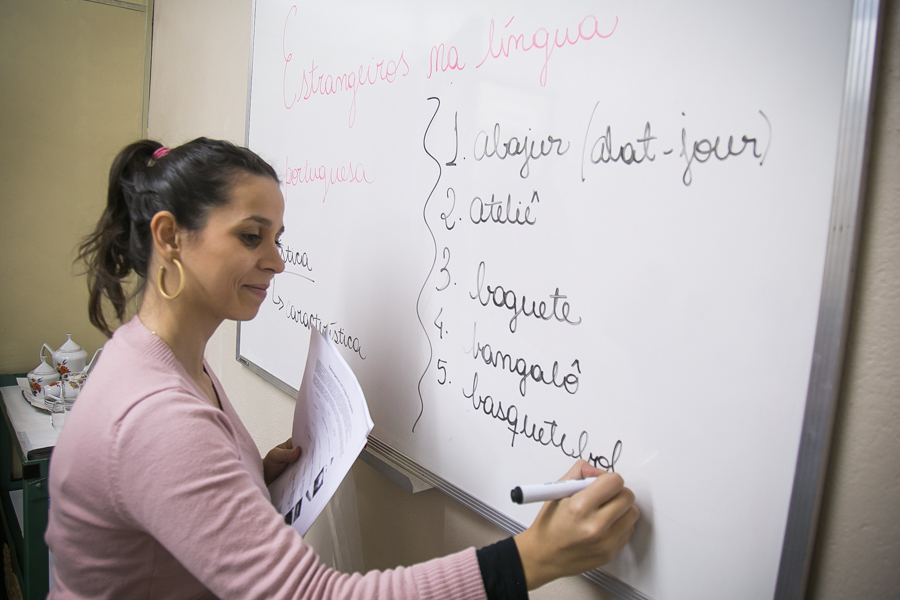 Estrangeiros na língua
portuguesa
stica
↳ característica
1. abajur (abat-jour)
2. ateliê
3. baguete
4. bangalô
5. basquetebol